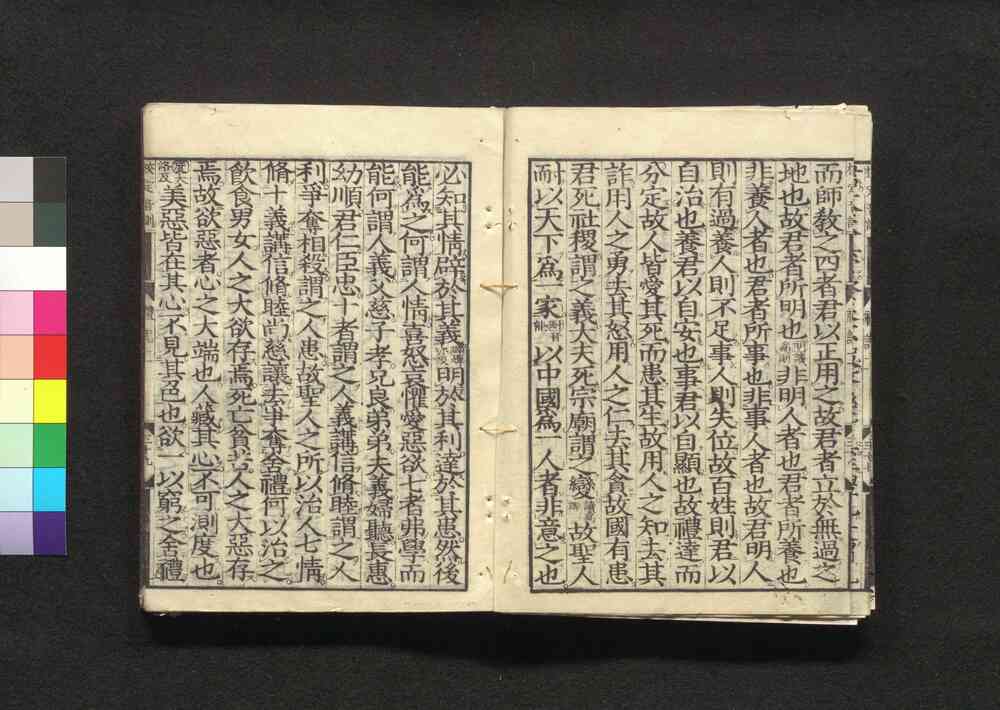 而師教之四者君以正用之故君者立於無過之
地也故君者所明也 非明人者也君者所養也
非養人者也君者所事也非事人者也故君明人
則有過養人則不足事人則失位故百姓則君以
自治也養君以自安也事君以自顯也故禮達而
分定故人皆愛其死而患其生故用人之知去其
詐用人之勇去其怒用人之仁去其貪故國有患
君死社稷謂之義大夫死宗廟謂之變 故聖人
耐以天下爲一家 以中國爲一人者非意之也
必知其情辟於其義 明於其利達於其患然後
能爲之何謂人情喜怒哀懼愛惡欲七者弗學而
能何謂人義父慈子孝兄良弟弟夫義婦聽長惠
幼順君仁臣忠十者謂之人義講信脩睦謂之人
利爭奪相殺謂之人患故聖人之所以治人七情
脩十義講信脩睦尚慈讓去爭奪舍禮何以治之
飲食男女人之大欲存焉死亡貧苦人之大惡存
焉故欲惡者心之大端也人藏其心不可測度也
美惡皆在其心不見其色也欲一以窮之舍禮